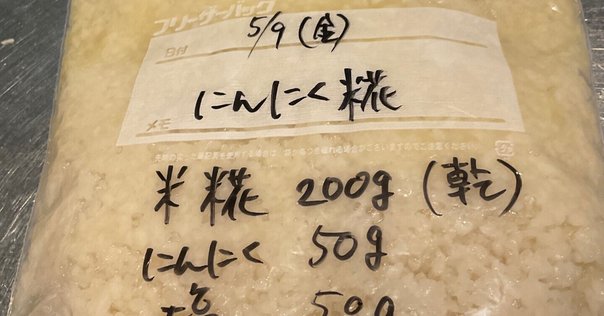 フリーザーバッグ
日付
5/9(金)
にんにく糀
メモ
米糀 200g(乾)
にんにく 50g
塩 50g